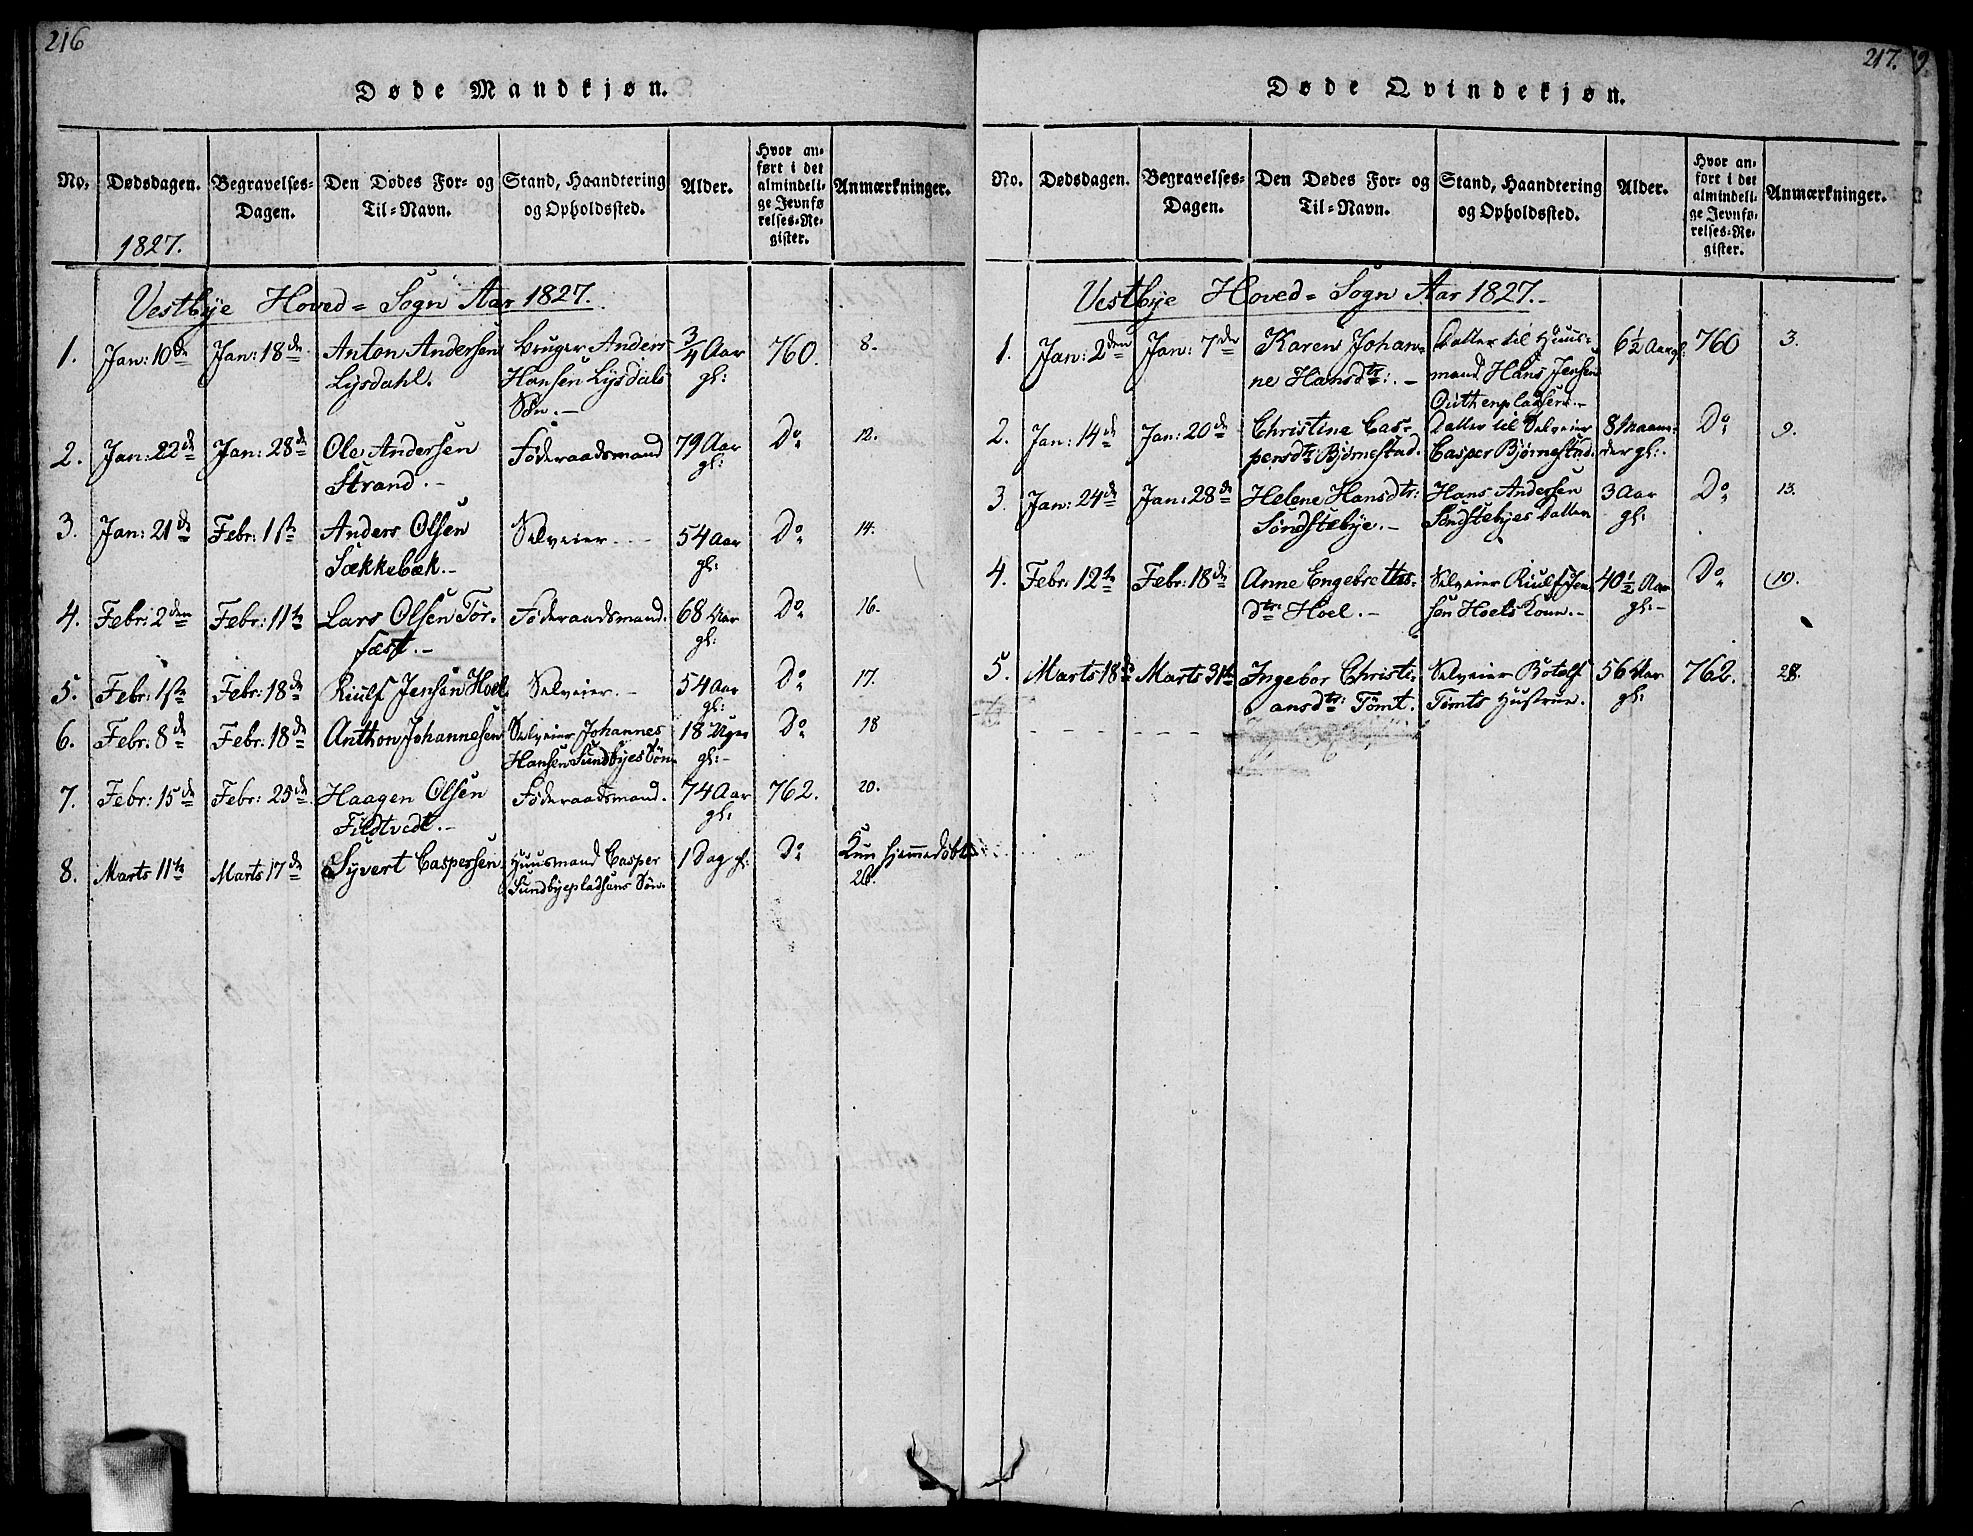 216
Døde Mandkjøn.
No. Dødsdagen. Begravelses-Dagen. Den Dødes For- og Til-Navn. Stand, Haandtering og Opholdssted. Alder. Hvor anført i det almindelige Jevnførelses-Register. Anmærkninger.
1827.
Vestbye Hoved = Sogn Aar 1827.
1. Jan: 10de Jan: 18de Anton Andersen Bruger Anders 3/4 Aar 760. 8.
Lysdahl. Hansen Lysdals gl:
Søn.-
2. Jan: 22de Jan: 28de Ole Andersen Føderaadsmand 79 Aar Do 12.
Strand.- gl:
3. Jan: 21de Febr: 1ste Anders Olsen Selveier.- 54 Aar Do 14.
Sækkebæk.- gl:
4. Febr: 2den Febr: 11te Lars Olsen Tør- Føderaadsmand. 68 Aar Do 16.
fæst.- gl:
5. Febr: 1ste Febr: 18de Riulf Jensen Hoel Selveier.- 54 Aar Do 17.
gl:
6. Febr: 8de Febr: 18de Anthon Johannesen Selveier Johannes 18 Uger Do 18
Hansen Sundbyes Søn gl:-
7. Febr: 15de Febr: 25de Haagen Olsen Føderaadsmand. 74 Aar 762. 20.
Fildtvedt.- gl:
8. Marts 11te Marts 17de Syvert Caspersen Huusmand Casper 1 Dag gl: Do Kun hjemmedøbt
Sundbyepladsens Søn. 26.
217.
Døde Qvindekjøn.
No. Dødsdagen. Begravelses-Dagen. Den Dødes For- og Til-Navn. Stand, Haandtering og Opholdssted. Alder. Hvor anført i det almindelige Jevnførelses-Register. Anmærkninger.
Vestbye Hoved = Sogn Aar 1827.-
1. Jan: 2den Jan: 7de Karen Johan- Datter til Huus- 6 1/2 Aar gl: 760 3.
ne Hansdtr:.- mand Hans Jensen
2. Jan: 14de Jan: 20de Christine Cas- Datter til Selveier 8 Maane- Do 9.
persdtr: Bjørnestad. Casper Bjørnestad. der gl:.
3. Jan: 24de Jan: 28de Helene Hansdtr: Hans Andersen 3 Aar Do 13.
Søndstebye.- Søndstebyes Datter gl:
4. Febr: 12te Febr: 18de Anne Engebretts- Selveier Riulf Jen- 40 1/2 Aar Do 19.
dtr: Hoel.- sen Hoels Kone.- gl:-
5. Marts 18de Marts 31te Ingebor Christi- Selveier Botolf 56 Aar 762. 28.
ansdtr: Tømt. Tømts Hustrue. gl: